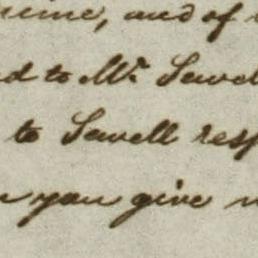 and of
to Mr. Sewell
to Sewell resp
you give